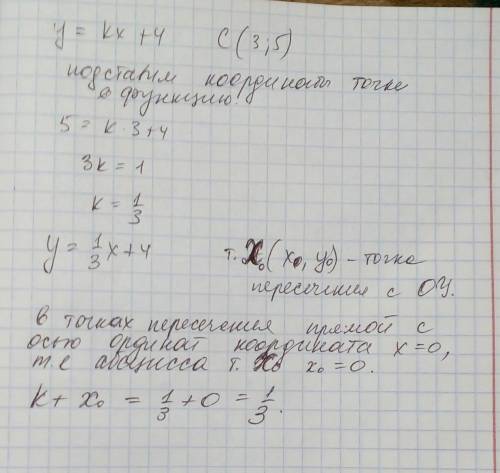 y = kx + 4 C(3;5)
подставим координаты точки
в функцию!
5 = k · 3 + 4
3k = 1
k = 1/3
y = 1/3 x + 4 т. X₀(x₀, y₀) – точка
пересечения с ОУ.
в точках пересечения прямой с
осью ординат координата x = 0,
т.е абсцисса т. X₀ x₀ = 0.
k + x₀ = 1/3 + 0 = 1/3.